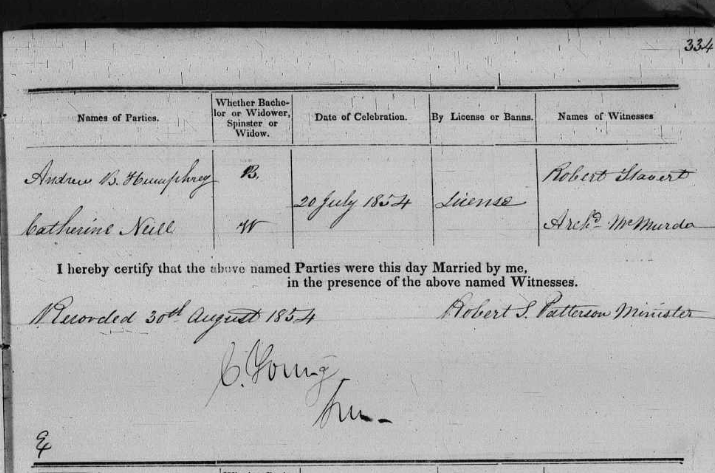 334
Names of Parties.
Whether Bache-
lor or Widower,
Spinster or
Widow.
Date of Celebration.
By License or Banns.
Names of Witnesses
Andrew B. Humphrey
B.
20 July 1854
License
Robert Stavert
Catherine Neill
W
Archd. McMurdo
I hereby certify that the above named Parties were this day Married by me,
in the presence of the above named Witnesses.
Recorded 30th August 1854
Robert S. Patterson Minister
C. Young